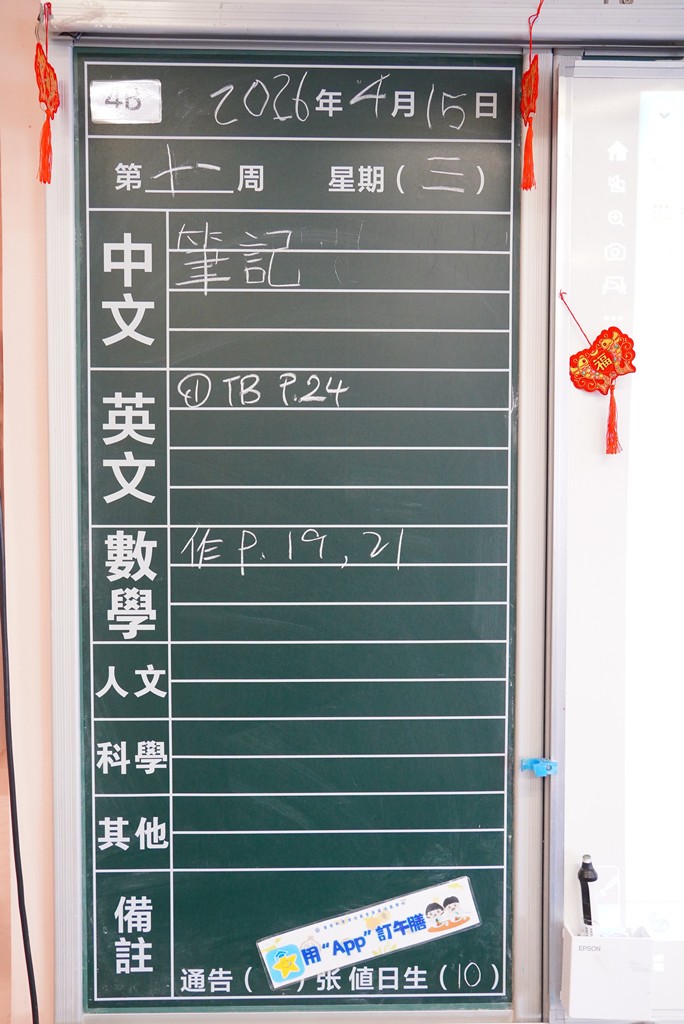 4B
2026年4月15日
第十一周 星期（三）
中文
筆記
英文
① TB P.24
數學
作 P. 19, 21
人文
科學
其他
備註
用“App”訂午膳
通告（ ）张 值日生（10）
福
EPSON